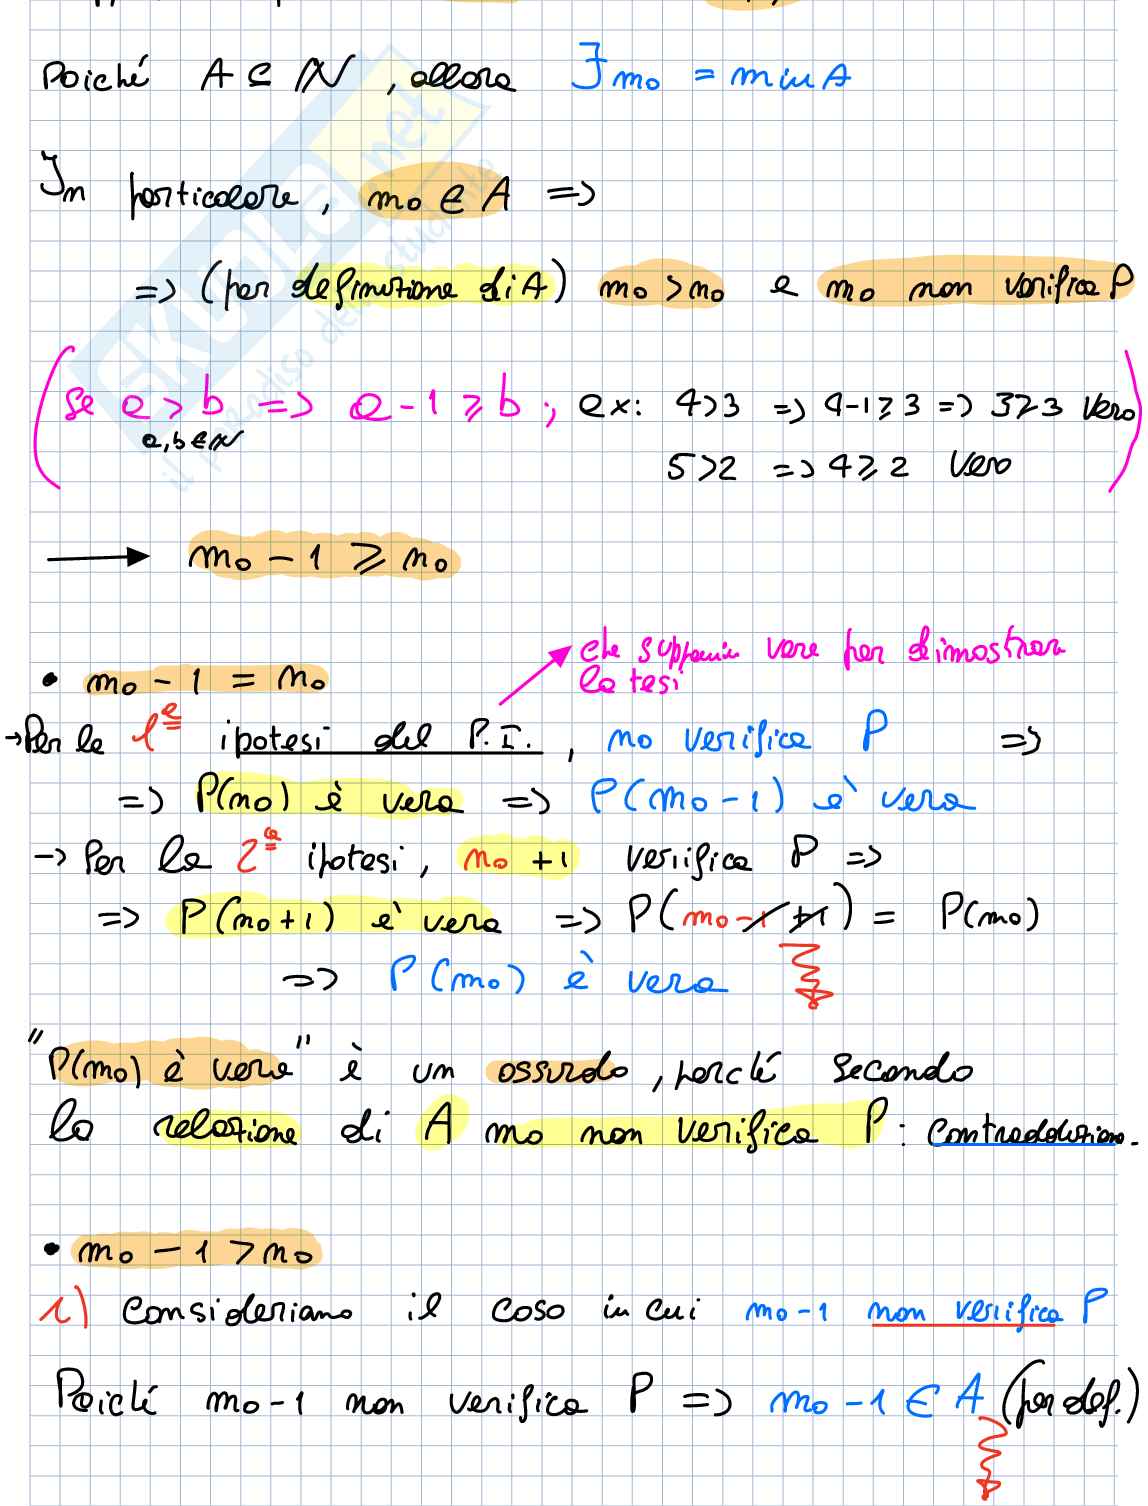 Poiché A ⊆ N, allora ∃ m₀ = min A
In particolare, m₀ ∈ A =>
=> (per definizione di A) m₀ > n₀ e m₀ non verifica P
(se a > b => a - 1 ≥ b ; ex: 4>3 => 4-1≥3 => 3≥3 Vero
a,b ∈ N
5>2 => 4≥2 Vero)
→ m₀ - 1 ≥ n₀
che supponiamo vere per dimostrare
la tesi
• m₀ - 1 = n₀
→ Per la 1ª ipotesi del P.I., n₀ verifica P =>
=> P(n₀) è vera => P(m₀-1) è vera
-> Per la 2ª ipotesi, n₀+1 verifica P =>
=> P(n₀+1) è vera => P(m₀-1+1) = P(m₀)
=> P(m₀) è vera
"P(m₀) è vera" è un assurdo, perché secondo
la relazione di A m₀ non verifica P: contraddizione.
• m₀ - 1 > n₀
1) Consideriamo il caso in cui m₀-1 non verifica P
Poiché m₀-1 non verifica P => m₀-1 ∈ A (per def.)
SKUOLA.net
il paradiso dello studente